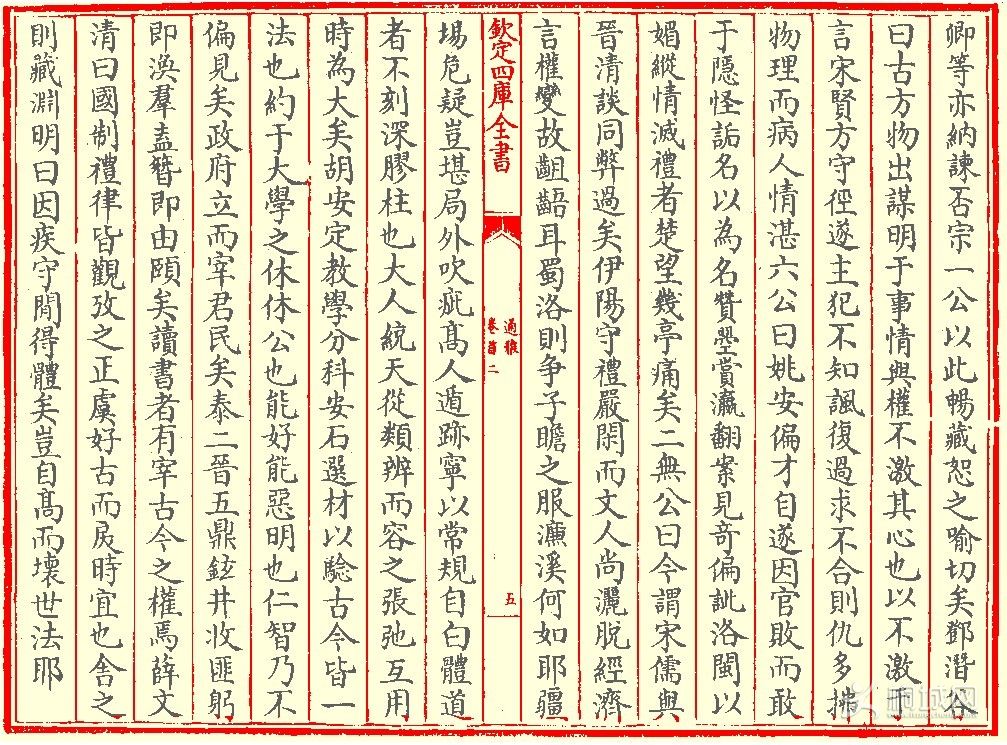 卿等亦納諫否宗一公以此暢藏恕之喻切矣鄧潛谷
曰古方物出謀明于事情與權不激其心也以不激于
言宋賢方守徑遂主犯不知諷復過求不合則仇多拂
物理而病人情湛六公曰姚安偏才自遂因官敗而敢
于隱怪詬名以為名贊墨賞瀛翻案見奇偏訿洛閩以
媚縱情滅禮者楚望幾亭痛矣二無公曰今謂宋儒與
晉清談同弊過矣伊陽守禮嚴閑而文人尚灑脫經濟
言權變故齟齬耳蜀洛則爭子瞻之服濂溪何如耶疆
欽定四庫全書
通雅
卷首二
五
場危疑豈堪局外吹疵髙人遁跡寧以常規自白體道
者不刻深膠柱也大人統天從類辨而容之張弛互用
時為大矣胡安定教學分科安石選材以驗古今皆一
法也約于大學之休休公也能好能惡明也仁智乃不
偏見矣政府立而宰君民矣泰二晉五鼎鉉井收匪躬
即渙羣盍簪即由頤矣讀書者有宰古今之權焉薛文
清曰國制禮律皆觀攷之正虞好古而戾時宜也舍之
則藏淵明曰因疾守閒得體矣豈自髙而壞世法耶